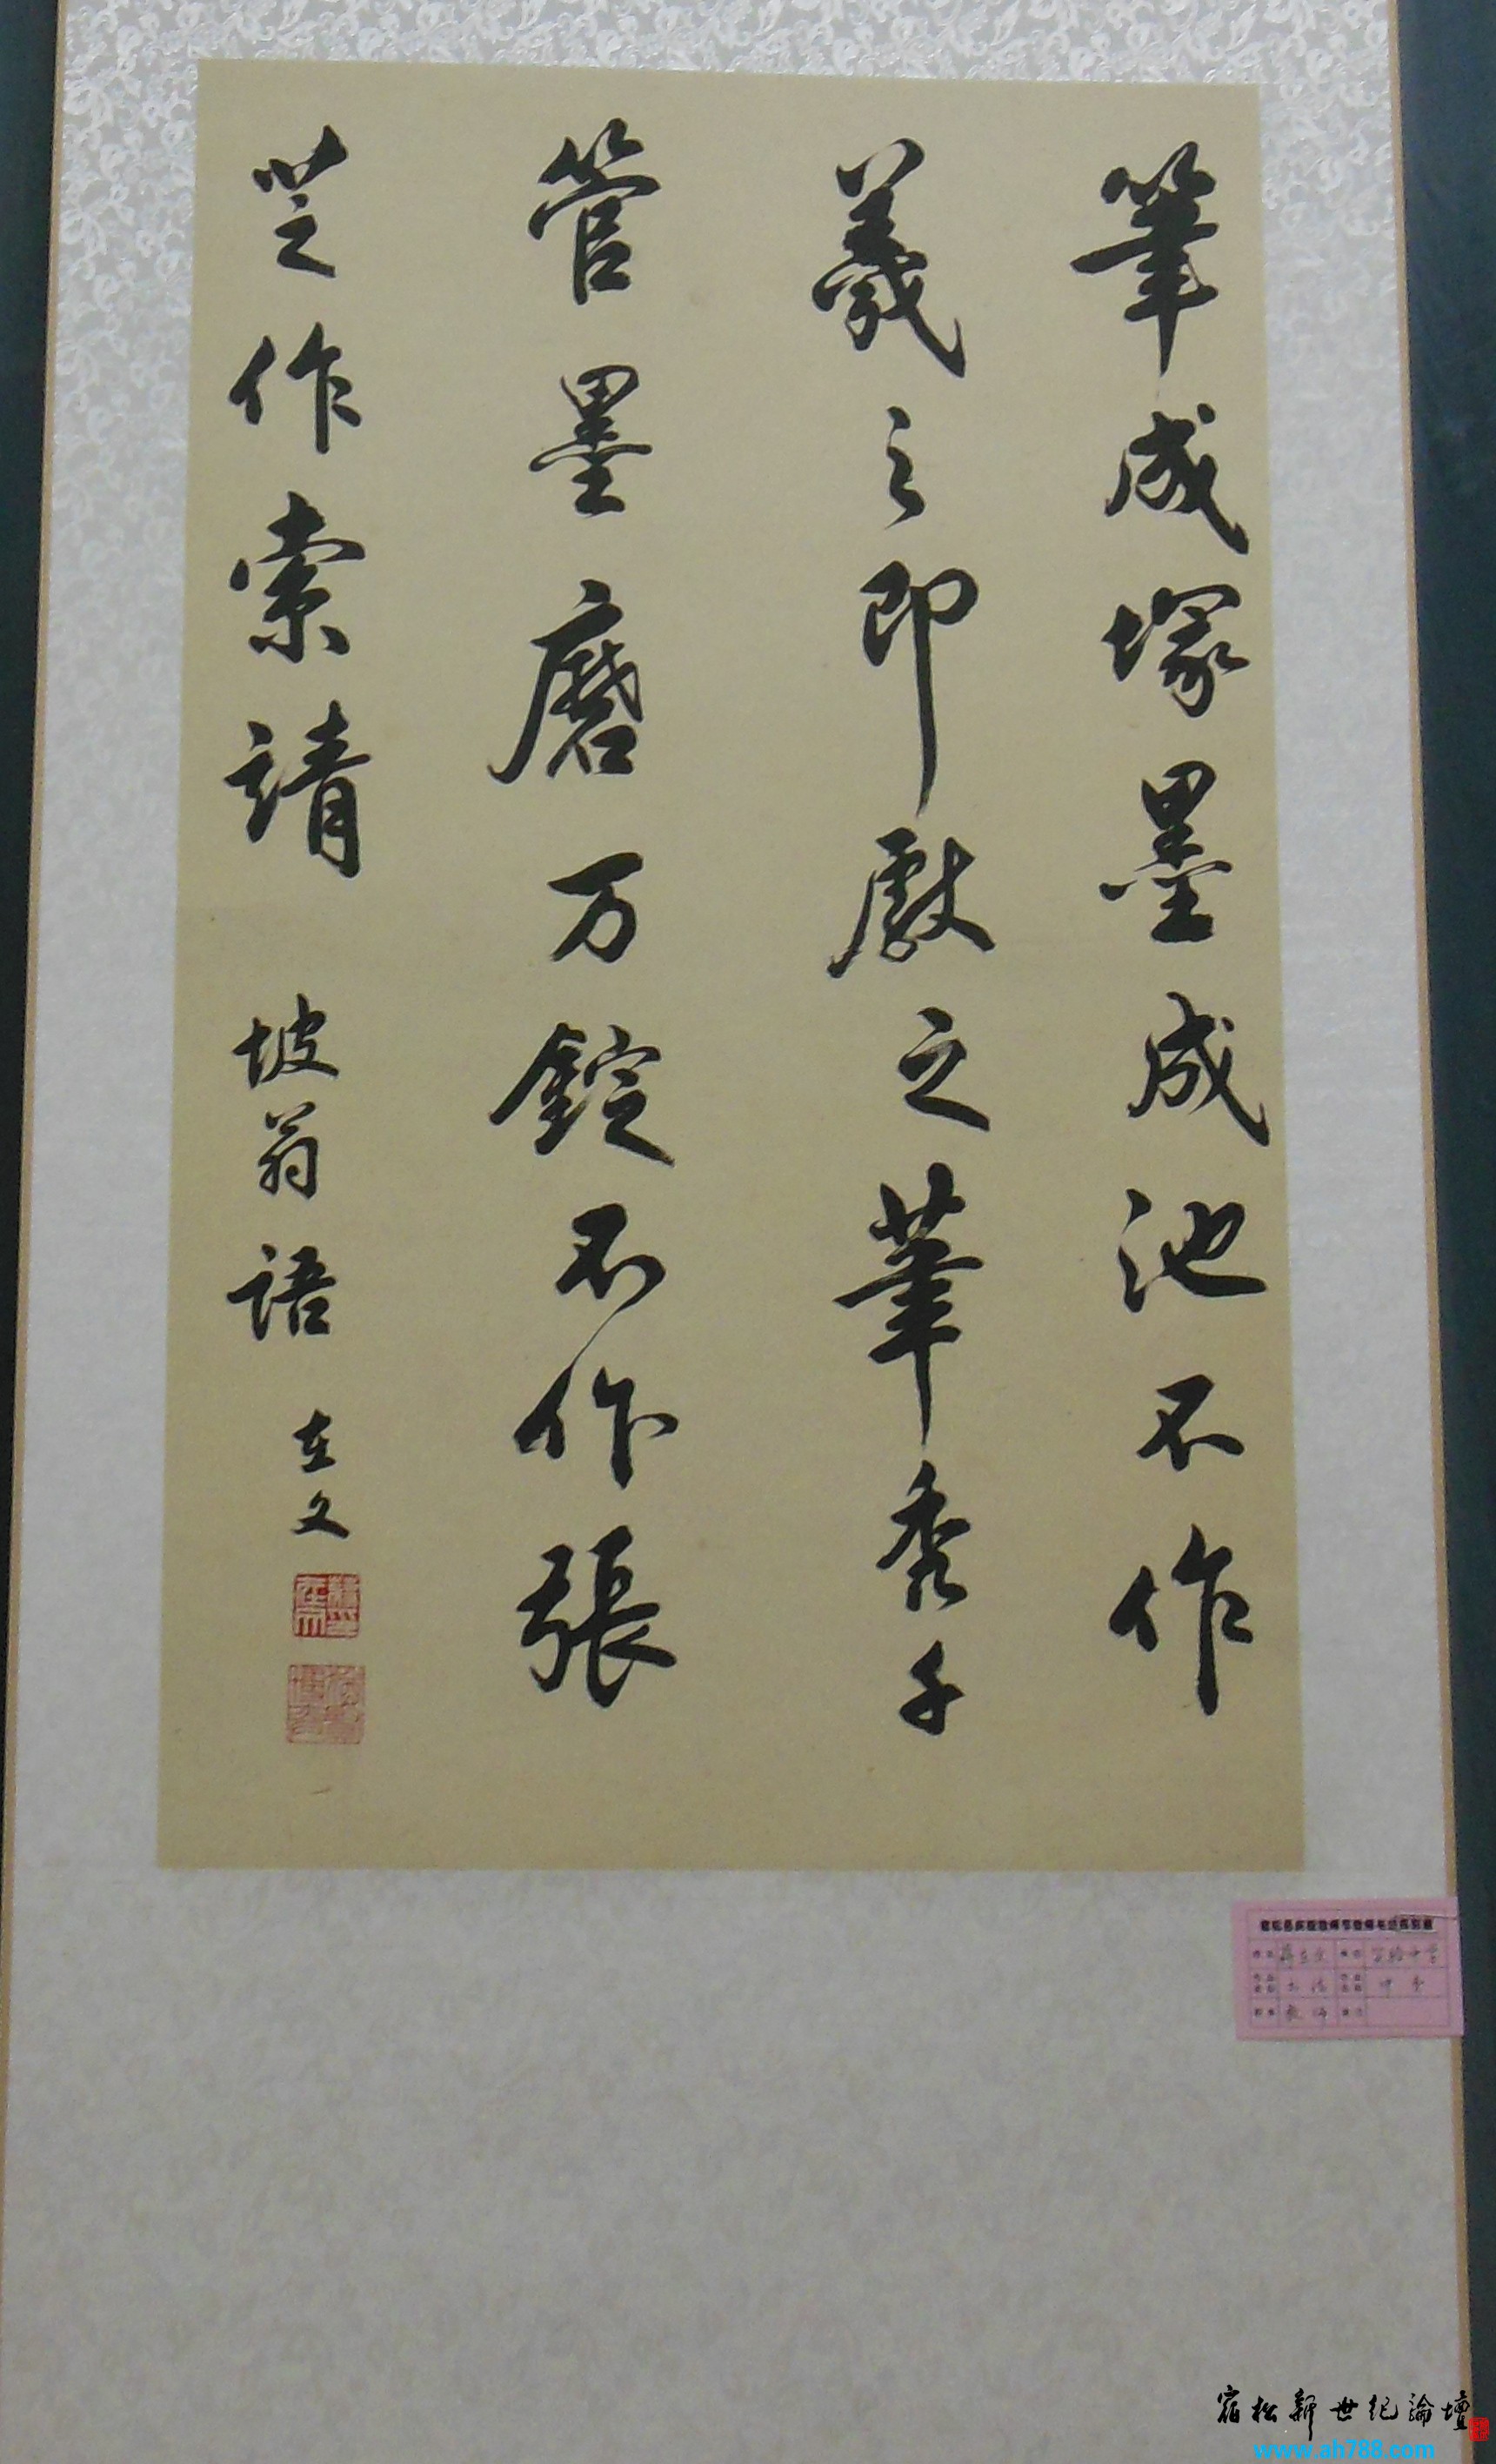 筆成塚墨成池不作
羲之即獻之筆禿千
管墨磨万錠不作張
芝作索靖
坡翁語
在文
教师
宿松新世纪論壇
www.ah788.com